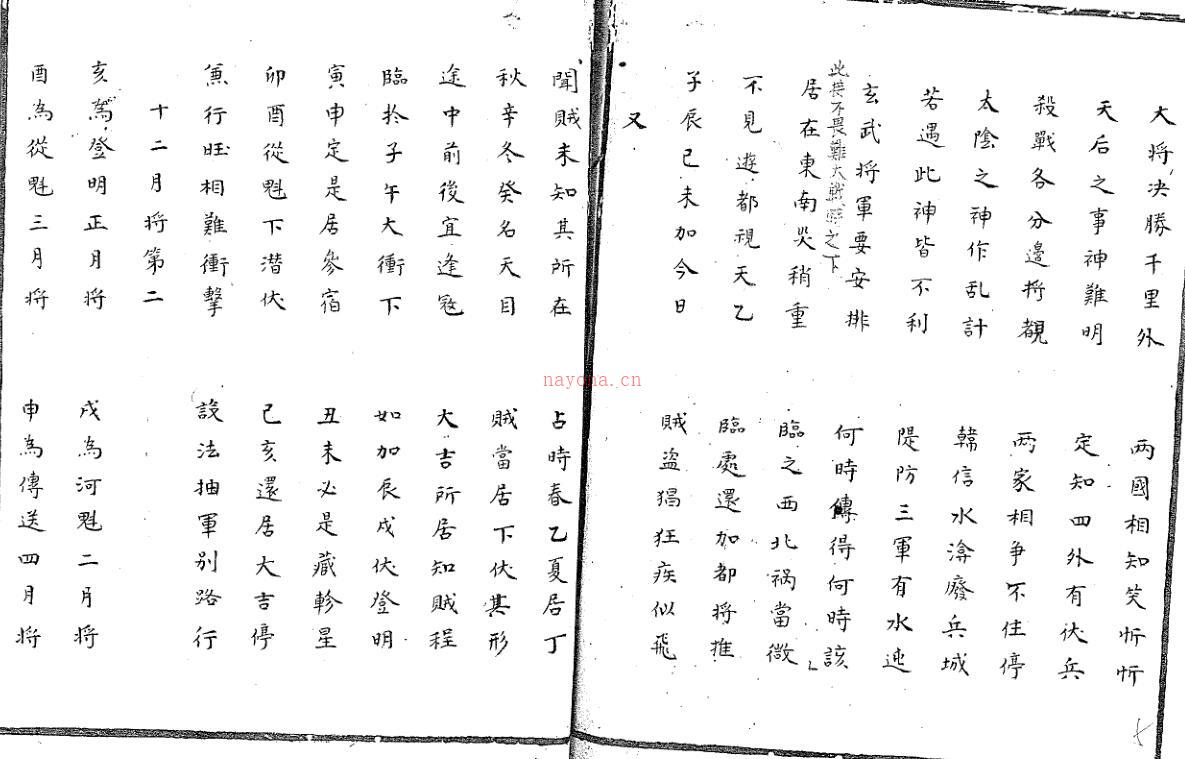 大将决勝千里外 两國相知笑忻忻
天后之事神難明 定知四外有伏兵
殺戰各分邊将覩 两家相争不住停
太陰之神作乱計 韓信水渰廢兵城
若遇此神皆不利 隄防三軍有水迍
玄武将軍要安排 何時傳得何時該
此将不畏難大戦 之下
居在東南災稍重 臨之西北祸當微
不見遊都視天乙 臨處還加都将推
子辰巳未加今日 賊盗猖狂疾似飛
又
聞賊未知其所在 占時春乙夏居丁
秋辛冬癸名天目 賊當居下伏其形
途中前後宜逢寇 大吉所居知賊程
臨於子午大衝下 如加辰戌伏登明
寅申定是居參宿 丑未必是藏軫星
卯酉從魁下潜伏 己亥還居大吉停
兼行旺相難衝擊 設法抽軍别路行
十二月将第二
亥為登明正月将 戌為河魁二月将
酉為從魁三月将 申為傳送四月将
nayona.cn